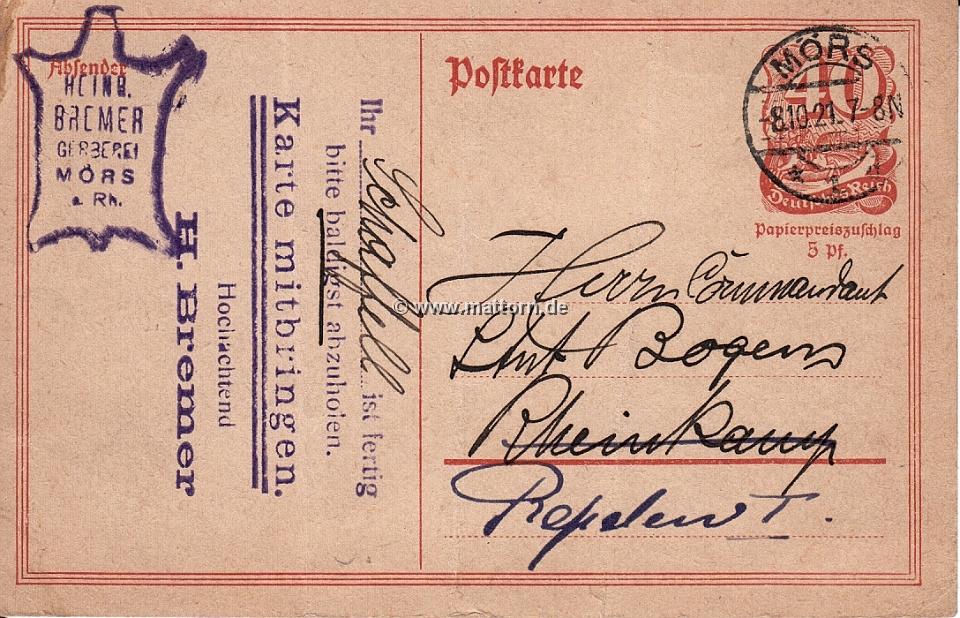 Absender
HEINR.
BREMER
GERBEREI
MÖRS
a. Rh.
Ihr Schaffell ist fertig
bitte baldigst abzuholen.
Karte mitbringen.
Hochachtend
H. Bremer
Postkarte
MÖRS
-8.10.21. 7-8N
40
Deutsches Reich
Papierpreiszuschlag
5 Pf.
Herrn Commandant
Bogens
Rheinkamp
Repelen I.
© www.mattorn.de